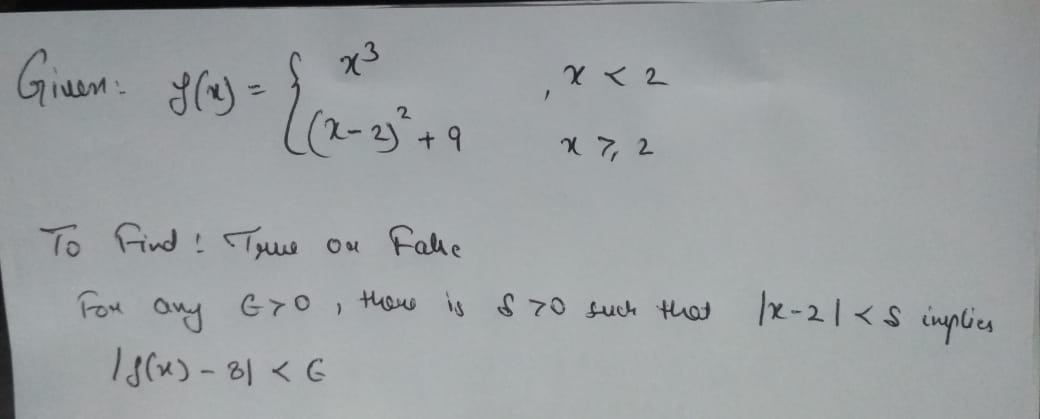 Given: f(x) = { x³ , x < 2
(x-2)² + 9 x ≥ 2
To Find: True or False
For any ϵ>0, there is δ>0 such that |x-2| < δ implies
|f(x) - 8| < ϵ